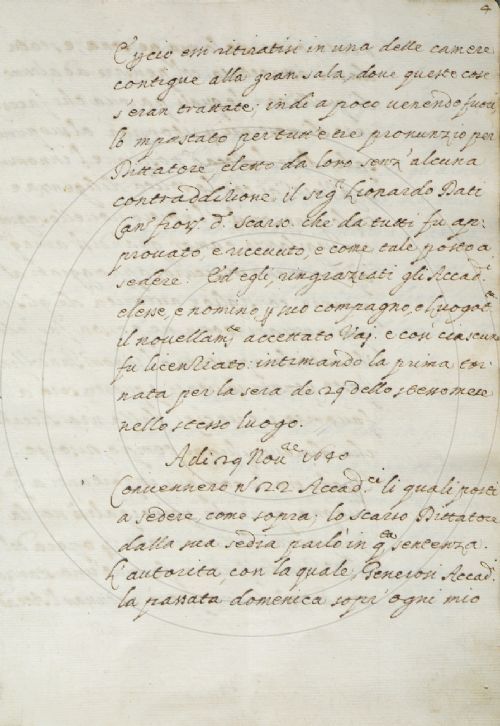 4
E p ciò essi ritiratisi in una delle camere
contigue alla gran sala, dove queste cose
s'eran trattate; indi a poco venendo fuori
lo Impastato per tutti e tre pronunziò per
Dittatore, eletto da loro senz'alcuna
contraddizione il sig.r Lionardo Dati
Can.co fior.no d.o Scarso che da tutti fu ap
provato, e ricevuto, e come tale posto a
sedere. Ed egli, ringraziati gli Accad.ci
elesse, e nominò p suo compagno, e Luogot.e
il novellam.te accettato Vaj. e così ciascuno
fu licenziato: intimando la prima tor
nata per la sera de 29 dello stesso mese
nello stesso luogo.
A di 29 Nov.bre 1640
Convennero n.o 22 Accad.ci li quali posti
a sedere, come sopra; lo Scarso Dittatore
dalla sua sedia parlò in q.ta sentenza.
L'autorità, con la quale, Generosi Accad.ci
la passata domenica sopr'ogni mio